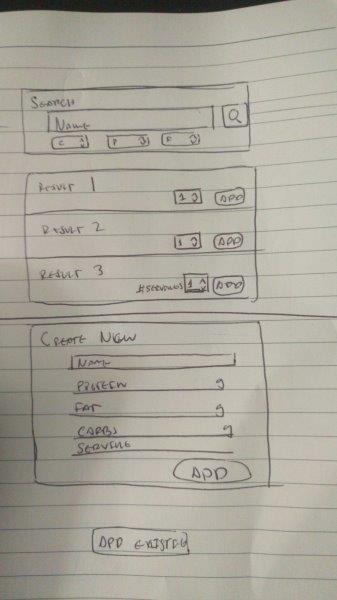 SEARCH
NAME
Q
C P F
RESULT 1
1 ADD
RESULT 2
1 ADD
RESULT 3
#SERVINGS 1 ADD
CREATE NEW
NAME
PROTEIN g
FAT g
CARBS g
SERVING
ADD
ADD EXISTING